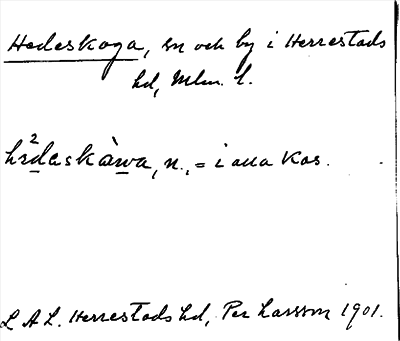 Hedeskoga, sn och by i Herrestads
hd, Mlm. l.
i alla kas.
L A L. Herrestads hd, Per Larsson 1901.